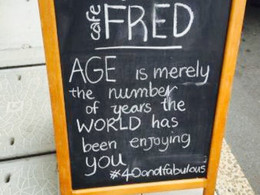 cafe FRED
AGE is merely
the number
of years the
WORLD has
been enjoying
you
#40andfabulous